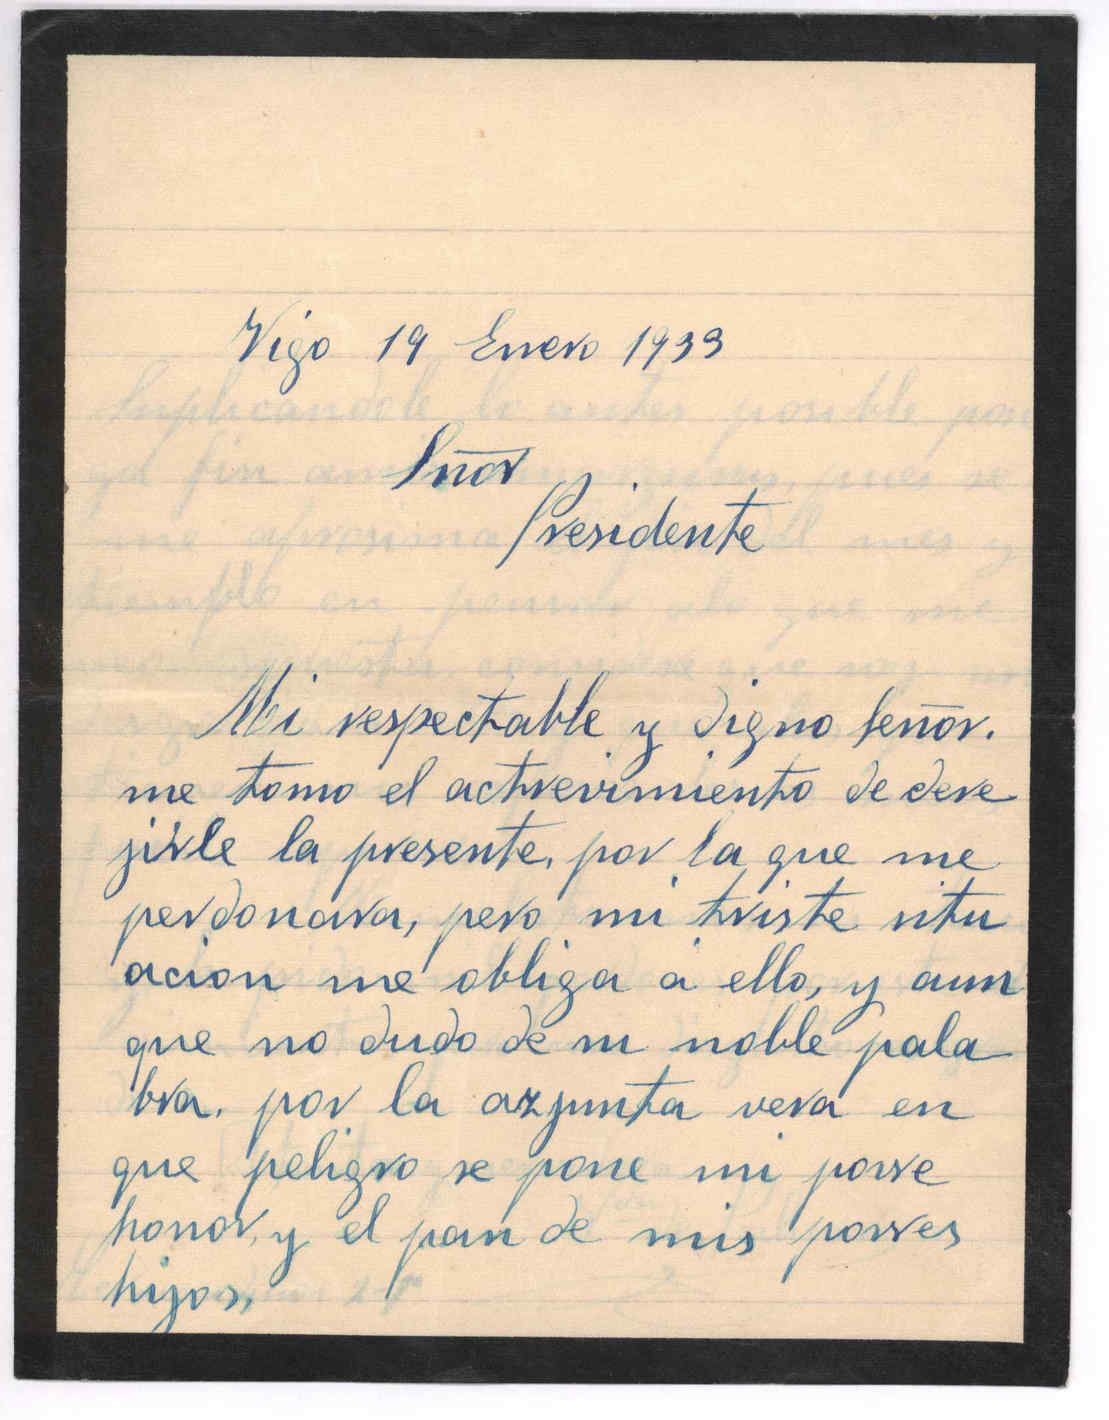 Vigo 19 Enero 1933
Señor
Presidente
Mi respectable y digno señor.
me tomo el actrevirmiento de dere
jirle la presente, por la que me
perdonara, pero mi triste situ
acion me obliga á ello, y aun
que no dudo de su noble pala
bra. por la azjunta vera en
que peligro se pone mi povre
honor, y el pan de mis povres
hijos,